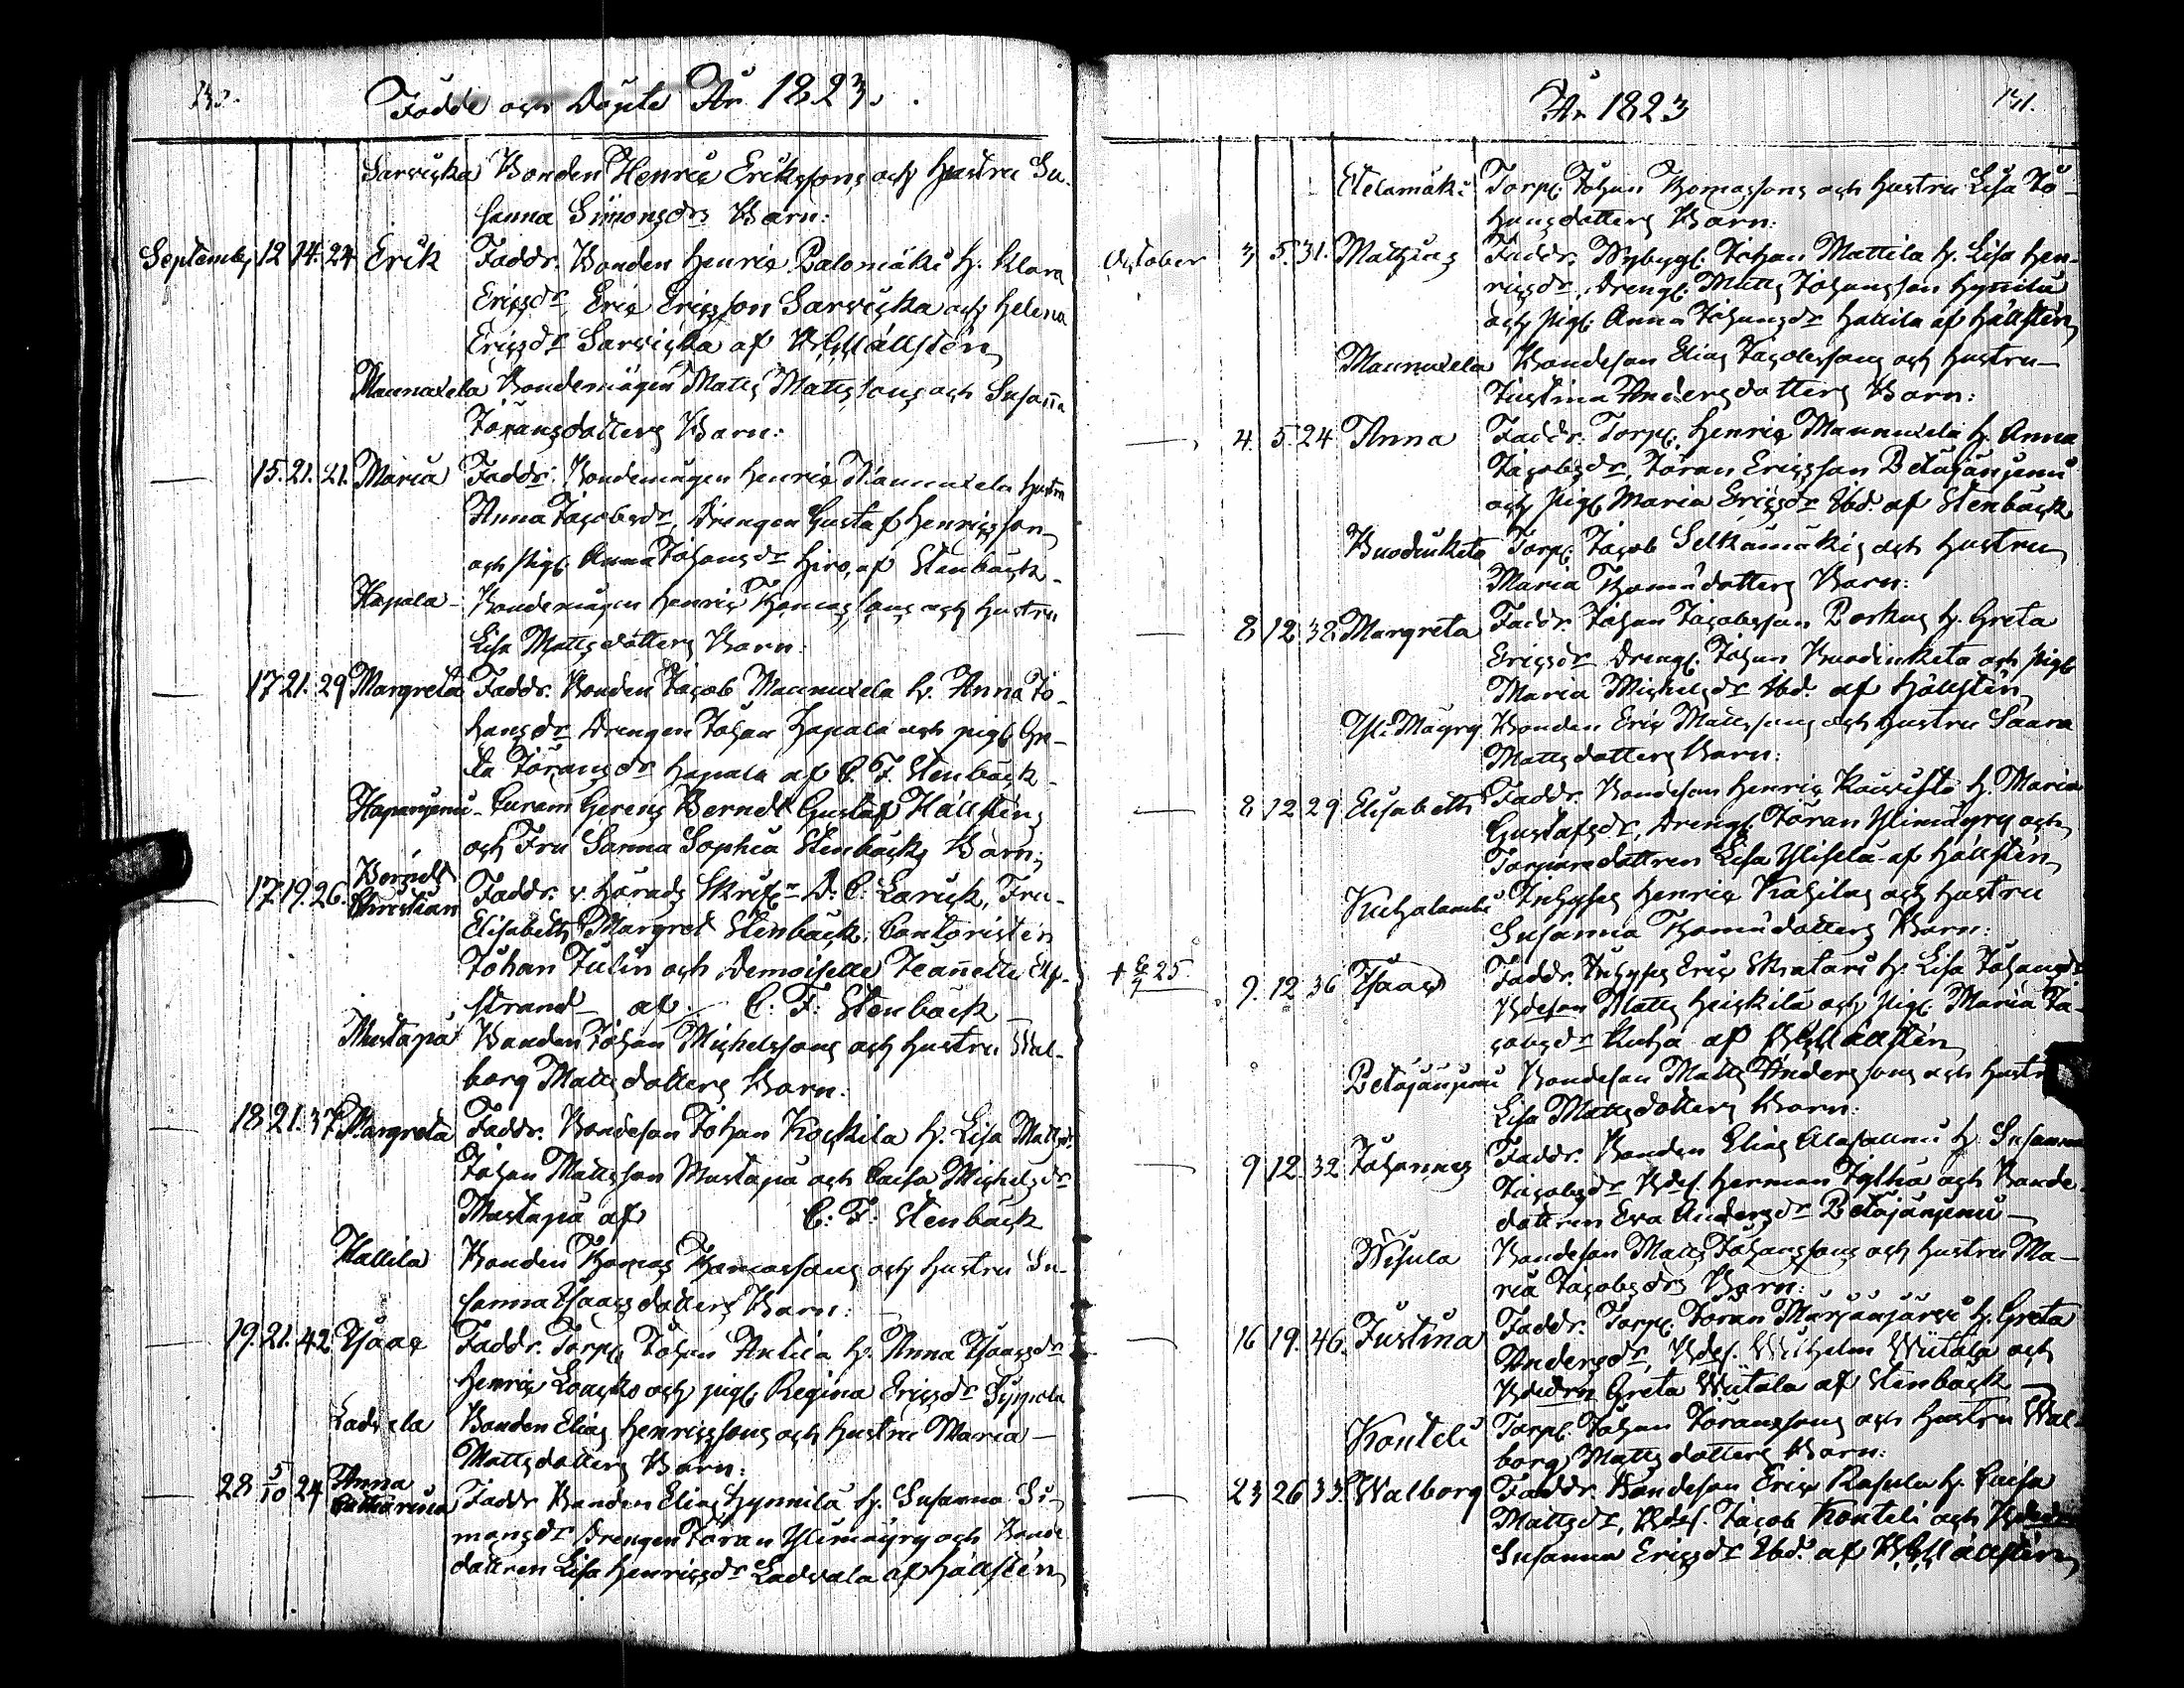 Födde och Döpte År 1823.
Sarvicka Bonden Henric Ericssons och hustru Su-
sanna Simonsdrs Barn:
September 12 14. 24 Erik Faddr. Bonden Henric Palomäki h. Klara
Ericsdr, Eric Ericsson Sarvicka och Helena
Ericsdr Sarvicka af BGHällstén
Maunuxela Bondemågen Matts Mattssons och Susanna
Jöransdotters Barn:
— 15. 21. 21. Maria Faddr: Bondemågen Henric Maunuxela hustru
Anna Jacobsdr, Drengen Gustaf Henricsson
och pig. Anna Johansdr Hiro, af Stenbäck
Hapala Bondemågen Henric Thomassons och hustru
Lisa Mattsdotters Barn:
— 17 21. 29 Margreta Faddr. Bonden Jacob Maunuxela h. Anna Jo-
hansdr Drengen Johan Hapala och pig. Gre-
ta Jöransdr Hapala af C. F. Stenbäck
Hapanjemi Curam Gerens Berndt Gustaf Hällsténs
och Fru Sanna Sophia Stenbäcks Barn:
— 17. 19. 26. Berndt Christian Faddr. v. Härads Skrifr D. C. Laruk, Fru
Elisabeth Margret Stenbäck, Cantoristen
Johan Julin och Demoiselle Jeannette Elf-
strand af C: F: Stenbäck
Mustapä Bonden Johan Michelssons och hustru Wal-
borg Mattsdotters Barn:
— 18 21. 37 Margreta Faddr. Bondeson Johan Kockila h. Lisa Mattsdr
Johan Mattsson Mustapä och Caisa Michelsdr
Mustapä af C: F: Stenbäck
Hallila Bonden Thomas Thomassons och hustru Su-
sanna Isaacsdotters Barn:
— 19. 21. 42. Isaac Faddr. Torp. Johan Antila h. Anna Isaacsdr
Henric Loucko och pig. Regina Ericsdr Sippola
Ladvala Bonden Elias Henricssons och hustru Maria
Mattsdotters Barn:
— 28 5/10 24 Anna Catharina Faddr Bonden Elias Hynnilä h. Susanna Si-
monsdr Drengen Jöran Ylimäyry och Bonde
dottren Lisa Henricsdr Ladvala af Hällstén
År 1823 131.
Etelamäki Torp. Johan Thomassons och hustru Lisa Jo-
hansdotters Barn:
October 3 5. 31. Mathias Faddr. Nybygg. Johan Mattila h. Lisa Hen-
ricsdr, Dreng. Matts Johansson Hynnilä
och pig. Anna Johansdr Hallila af Hällstén
Maunuxela Bondeson Elias Jacobssons och hustru
Justina Andersdotters Barn:
— 4. 5. 24 Anna Faddr. Torp. Henric Maunuxela h. Anna
Jacobsdr, Jöran Ericsson Petäjänjemi
och pig. Maria Ericsdr Ibd. af Stenbäck
Buodinketo Torp. Jacob Selkämäkis och hustru
Maria Thomædotters Barn:
— 8 12. 38 Margreta Faddr. Johan Jacobsson Porkas h. Greta
Ericsdr Dreng. Johan Buodinketo och pig.
Maria Michelsdr Ibd. af Hällstén
Yli-Mäyry Bonden Eric Mattssons och hustru Saara
Mattsdotters Barn:
— 8 12 29 Elisabeth Faddr. Bondeson Henric Koivisto h. Maria
Gustafsdr, Dreng. Jöran Ylimäyry och
Torparedottren Lisa Ylisela af Hällstén
Kuhalambi Inhyses Henric Kahilas och hustru
Susanna Thomædotters Barn:
+ 6/7 25. 9. 12 36 Isaac Faddr. Inhyses Eric Skratari h. Lisa Johansdr
Bdeson Matts Heickilä och pig. Maria Ja-
cobsdr Kuha af BGHällstén
Petäjänjemi Bondeson Matts Anderssons och hustr
Lisa Mattsdotters Barn:
— 9 12. 32 Johannes Faddr. Bonden Elias Alasallmi h. Susanna
Jacobsdr Bdes. Herman Jylhä och Bonde
dottren Eva Andersdr Petäjänjemi
Wesula Bondeson Matts Johanssons och hustru Ma-
ria Jacobsdrs Barn:
— 16 19. 46. Justina Faddr. Torp. Jöran Marjanjärvi h. Greta
Andersdr, Bdes. Wilhelm Wiitala och
Bdedrn Greta Wiitala af Stenbäck
Konteli Torp. Johan Jöranssons och hustru Wal-
borg Mattsdotters Barn:
— 23 26 33. Walborg Faddr. Bondeson Eric Rasula h. Caisa
Mattsdr, Bdes. Jacob Konteli och
Susanna Ericsdr Ibd. af BGHällstén